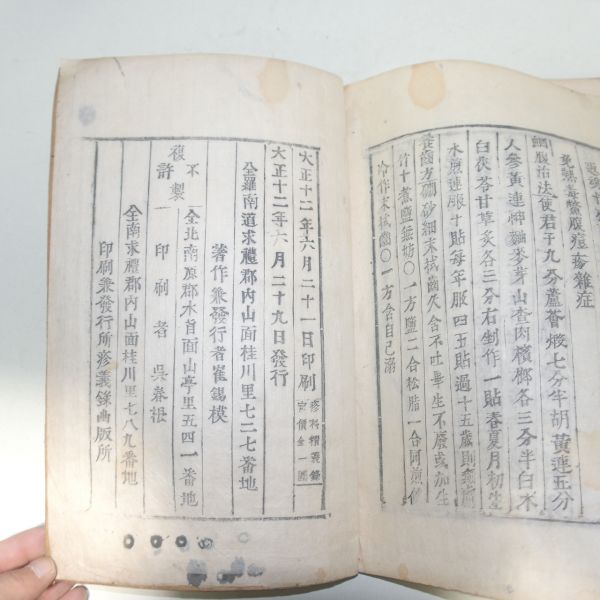 惡
免鷄毒鱉腹痘疹雜症
鱉腹治法使君子九分蘆薈煅七分半胡黃連五分
人參黃連神麯麥芽山査肉檳榔各三分半白朮
白茯苓甘草炙各三分右剉作一貼春夏月初生
水煎連服十貼每年服四五貼過十五歲則
齒方硼砂細末拭齒久含不吐畢生不廢或加生
竹十煮鹽無妨〇一方鹽二合松脂一合同煎作
冷作末拭齒〇一方含自己溺
大正十二年六月二十一日印刷
疹科精義錄
定價金一圓
大正十二年六月二十九日發行
全羅南道求禮郡內山面桂川里七二七番地
著作兼發行者崔錫模
不許
複製
全北南原郡水旨面山亭里五四一番地
印刷者吳春根
全南求禮郡內山面桂川里七八九番地
印刷兼發行所疹義錄曲版所